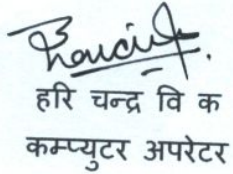 हरि चन्द्र वि क
कम्प्युटर अपरेटर